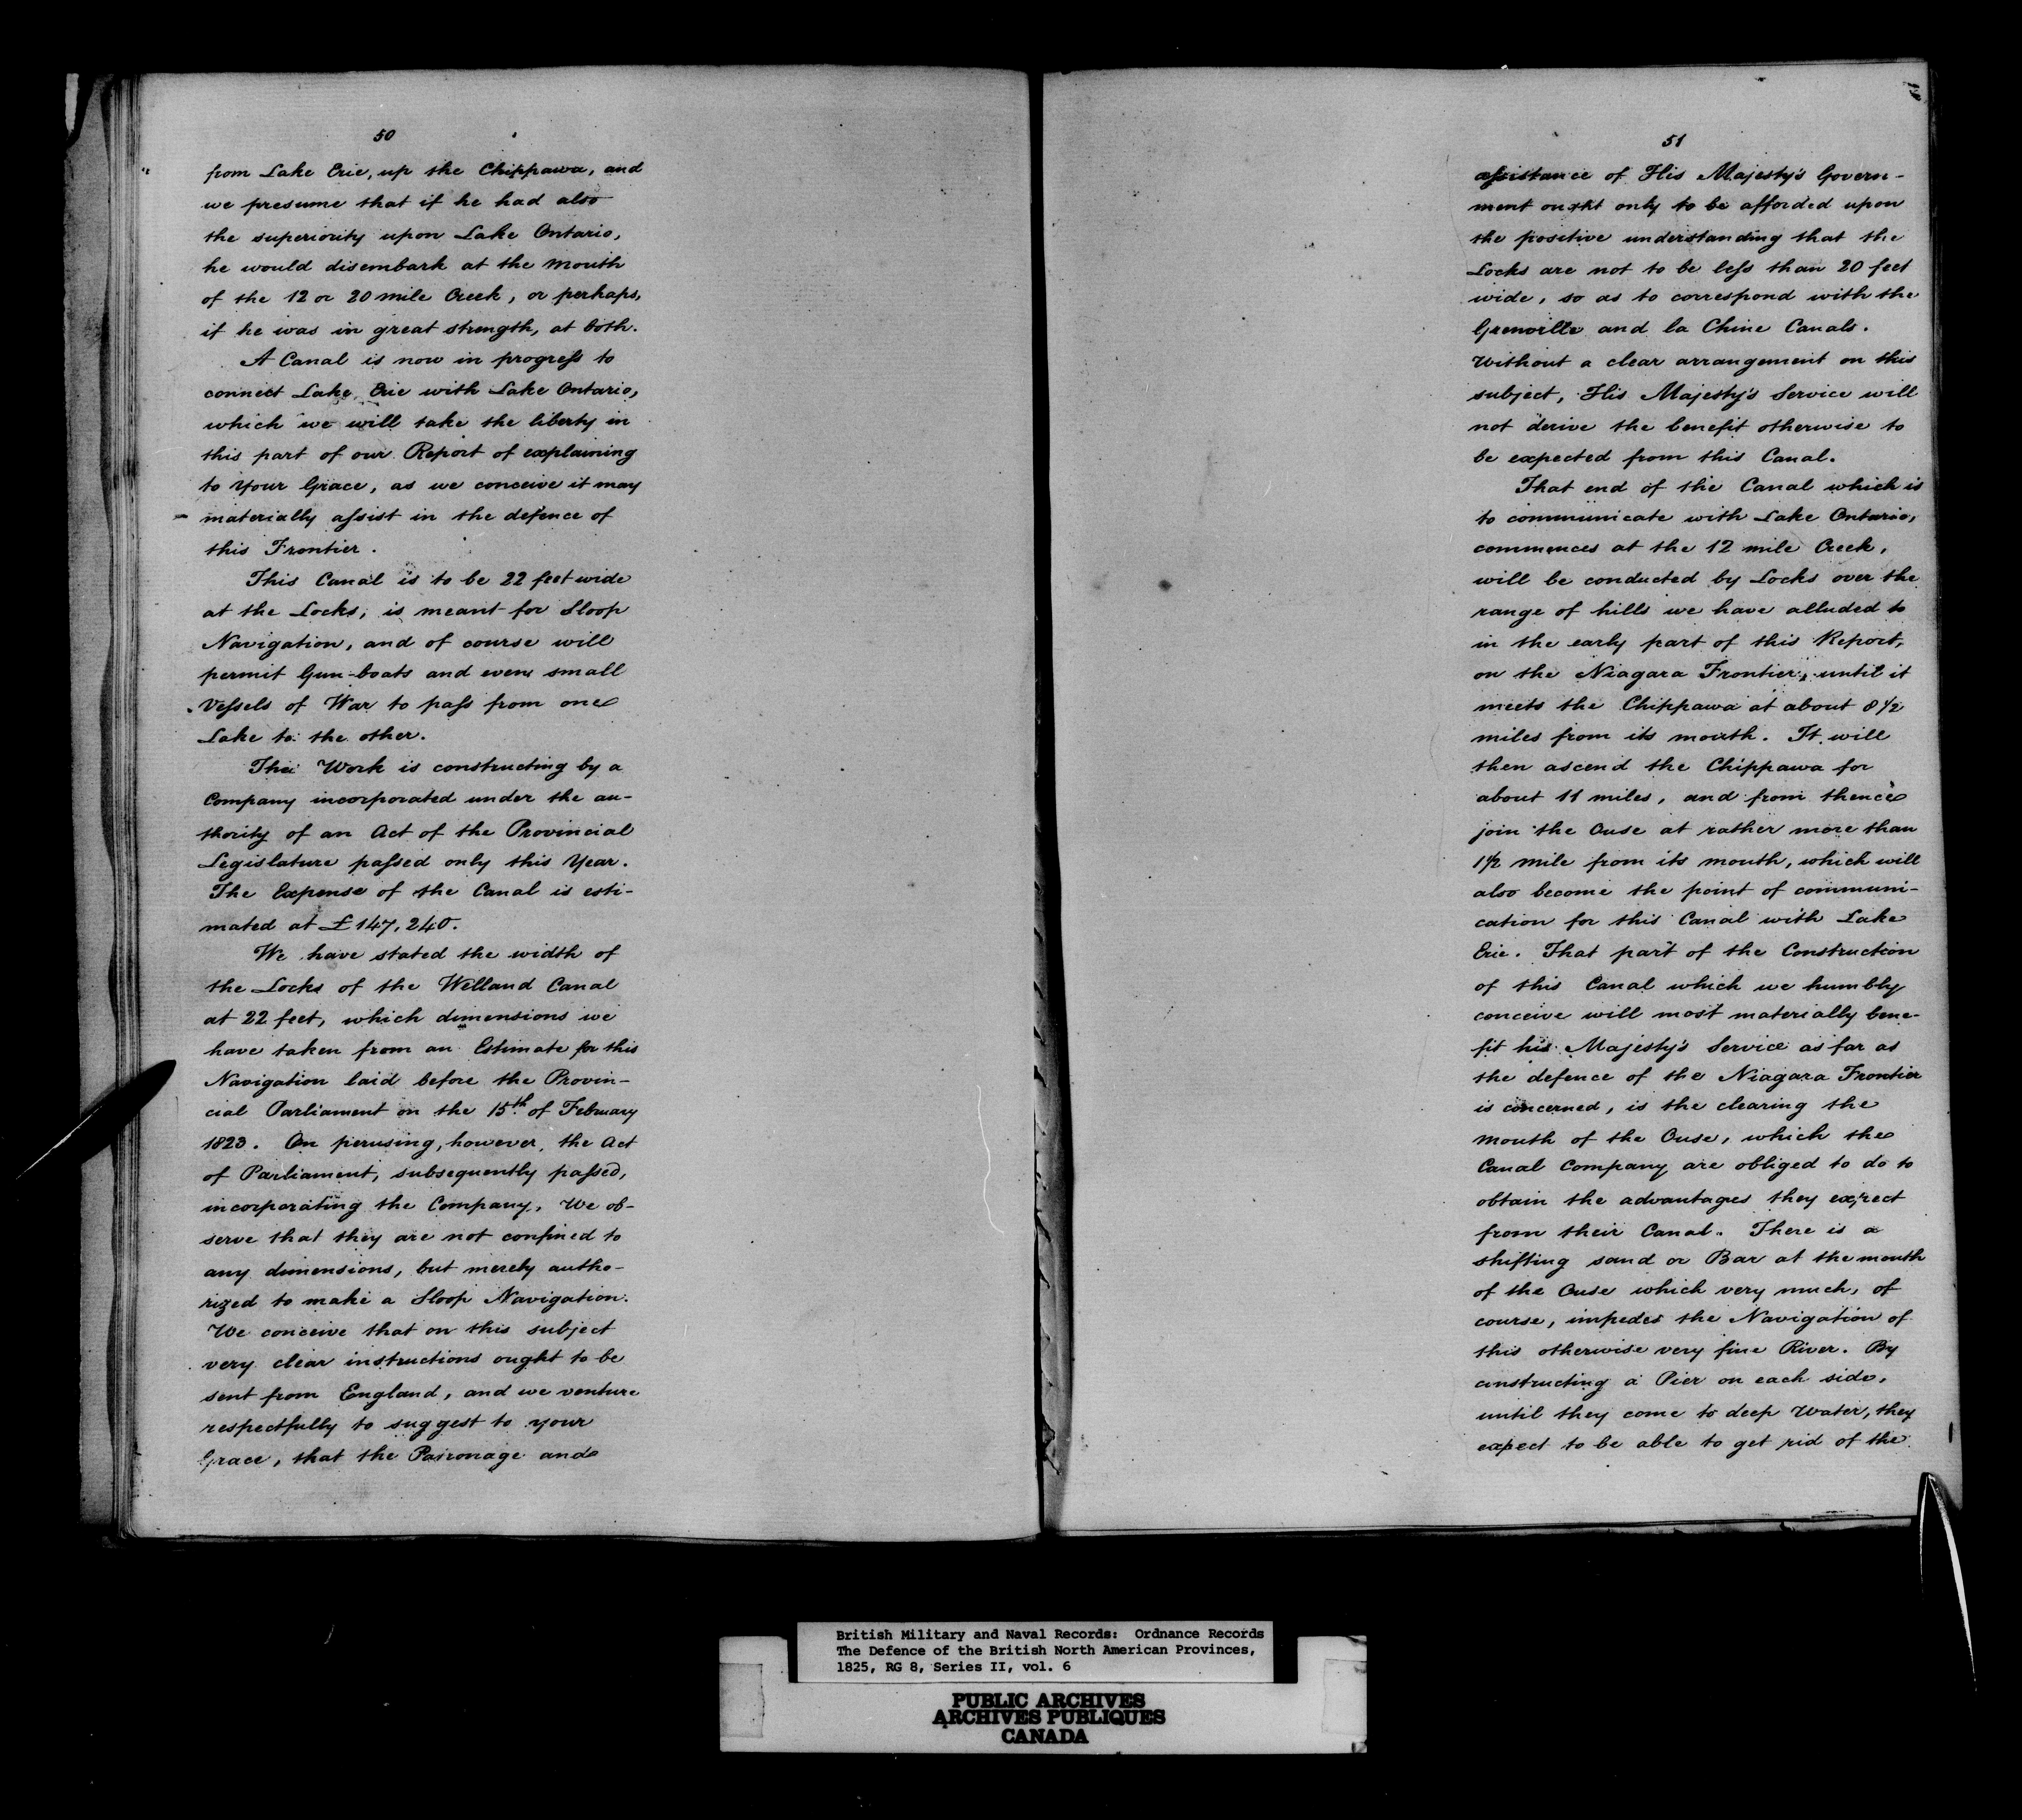 50
from Lake Erie, up the Chippawa, and
we presume that if he had also
the superiority upon Lake Ontario,
he would disembark at the mouth
of the 12 or 20 mile Creek, or perhaps,
if he was in great strength, at both.
A Canal is now in progress to
connect Lake Erie with Lake Ontario,
which we will take the liberty in
this part of our Report of explaining
to Your Grace, as we conceive it may
materially assist in the defence of
this Frontier.
This Canal is to be 22 feet wide
at the Locks, is meant for Sloop
Navigation, and of course will
permit Gun-boats and even small
Vessels of War to pass from one
Lake to the other.
The Work is constructing by a
Company incorporated under the au-
thority of an Act of the Provincial
Legislature passed only this Year.
The Expense of the Canal is esti-
mated at £147,240.
We have stated the width of
the Locks of the Welland Canal
at 22 feet, which dimensions we
have taken from an Estimate for this
Navigation laid before the Provin-
cial Parliament on the 15th of February
1823. On perusing, however, the Act
of Parliament, subsequently passed,
incorporating the Company, We ob-
serve that they are not confined to
any dimensions, but merely autho-
rized to make a Sloop Navigation.
We conceive that on this subject
very clear instructions ought to be
sent from England, and we venture
respectfully to suggest to your
Grace, that the Patronage and
51
assistance of His Majesty's Govern-
ment ought only to be afforded upon
the positive understanding that the
Locks are not to be less than 20 feet
wide, so as to correspond with the
Grenville and la Chine Canals.
Without a clear arrangement on this
subject, His Majesty's Service will
not derive the benefit otherwise to
be expected from this Canal.
That end of the Canal which is
to communicate with Lake Ontario,
commences at the 12 mile Creek,
will be conducted by Locks over the
range of hills we have alluded to
in the early part of this Report,
on the Niagara Frontier, until it
meets the Chippawa at about 8 1/2
miles from its mouth. It will
then ascend the Chippawa for
about 11 miles, and from thence
join the Ouse at rather more than
1 1/2 mile from its mouth, which will
also become the point of communi-
cation for this Canal with Lake
Erie. That part of the Construction
of this Canal which we humbly
conceive will most materially bene-
fit his Majesty's Service as far as
the defence of the Niagara Frontier
is concerned, is the clearing the
mouth of the Ouse, which the
Canal Company are obliged to do to
obtain the advantages they expect
from their Canal. There is a
shifting sand or Bar at the mouth
of the Ouse which very much, of
course, impedes the Navigation of
this otherwise very fine River. By
constructing a Pier on each side,
until they come to deep Water, they
expect to be able to get rid of the
British Military and Naval Records: Ordnance Records
The Defence of the British North American Provinces,
1825, RG 8, Series II, vol. 6
PUBLIC ARCHIVES
ARCHIVES PUBLIQUES
CANADA